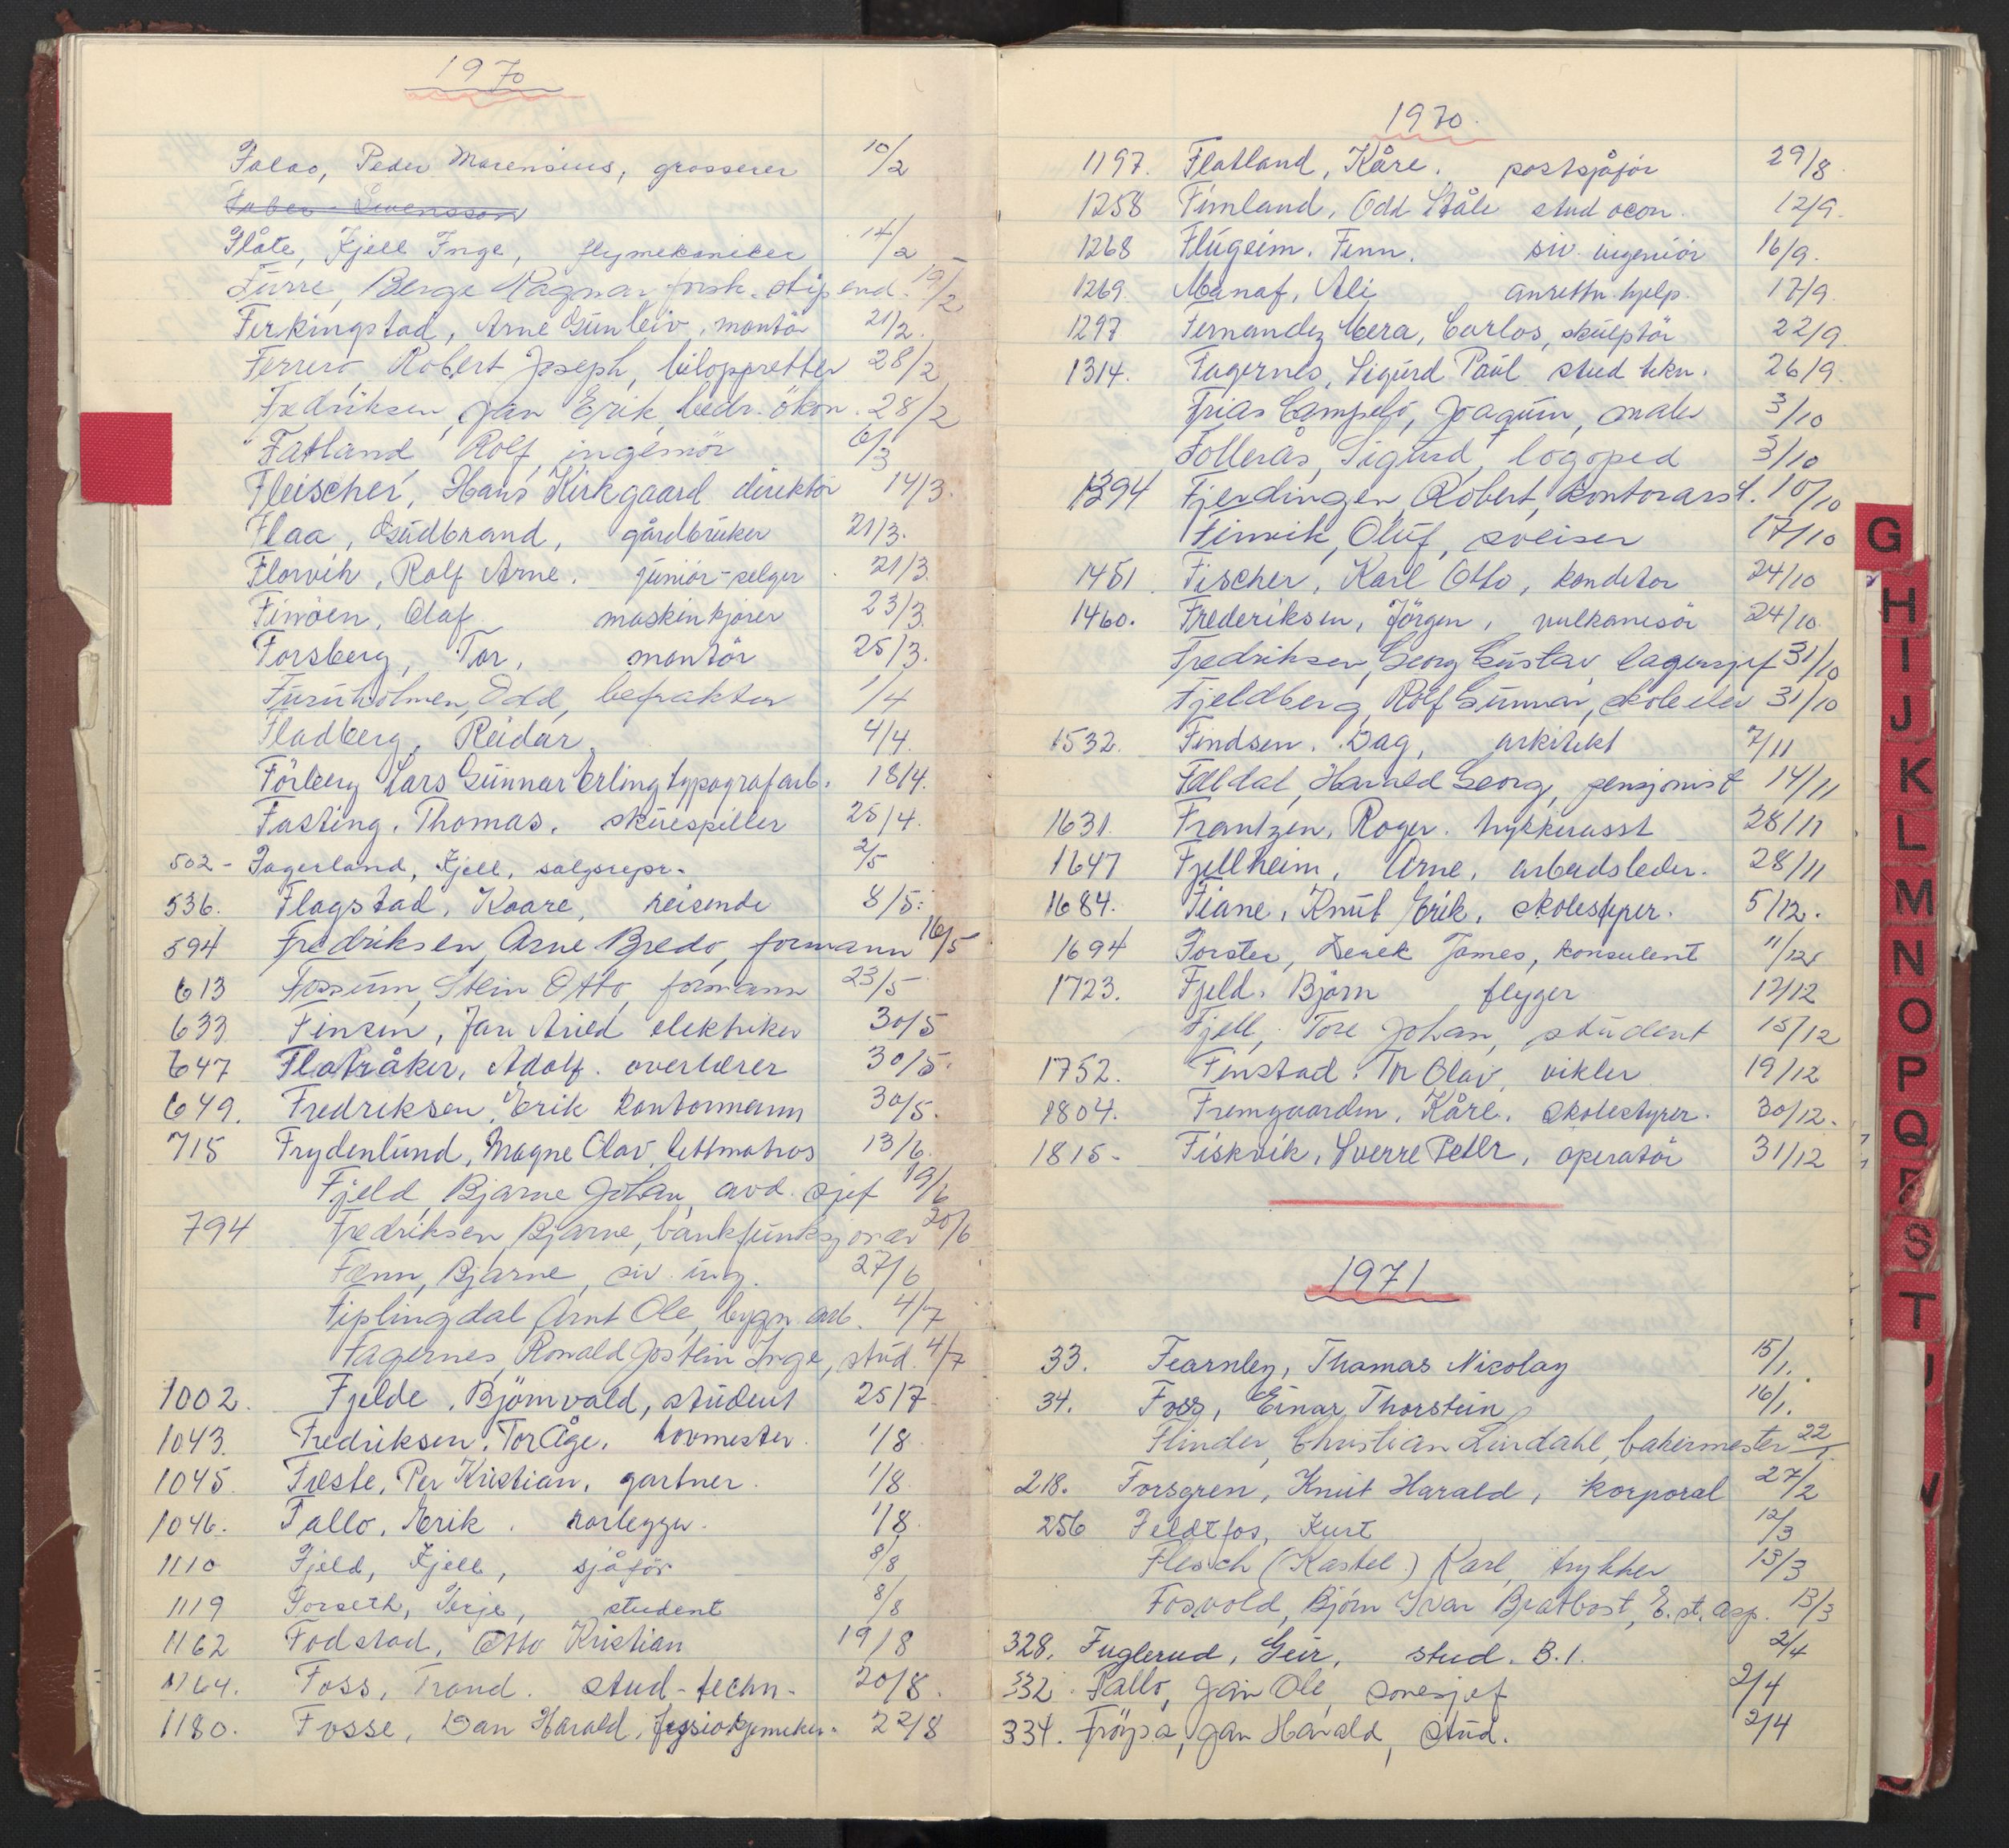 1970
Falao, Peder Marensius, grosserer 10/2
Faber - Svensson
Flåte, Kjell Inge, flymekaniker 14/2
Furre, Berge Ragnar forsk. stipend. 19/2
Ferkingstad, Arne Gunleiv, montör 21/2.
Ferrero Robert Joseph, biloppretter 28/2
Fredriksen, Jan Erik, bedr. ökon. 28/2
Fatland Rolf ingeniör 6/3
Fleischer, Hans Kirkgaard direktör 14/3.
Flaa, Gudbrand, gårdbruker 21/3.
Florvik, Rolf Arne. junior-selger 21/3.
Finnöen, Olaf maskinkjörer 23/3.
Forsberg, Tor, montör 25/3.
Furuholmen, Odd, befrakter 1/4
Fladberg, Reidar. 4/4.
Förberg Lars Gunnar Erling typograf arb. 18/4.
Fasting, Thomas. skuespiller 25/4.
502 - Fagerland, Kjell, salgsrepr. 2/5
536. Flagstad, Kaare, reisende 8/5.
594 Fredriksen, Arne Bredo, formann 16/5
613 Fossum, Stein Otto, formann 23/5
633 Finsen, Jan Arild elektriker 30/5
647 Flatråker, Adolf. overlærer 30/5.
649. Fredriksen, Erik kontormann 30/5.
715 Frydenlund, Magne Olav, lettmatros 13/6.
Fjeld, Bjarne Johan, avd. sjef 19/6
794 Fredriksen, Bjarne, bankfunksjonær 20/6
Fenn, Bjarne, siv. ing. 27/6
Fiplingdal, Arnt Ole, bygn. arb. 4/7
Fagernes, Ronald Jostein Inge, stud. 4/7
1002. Fjelde, Björnvald, student 25/7
1043. Fredriksen, Tor Åge. hovmester. 1/8
1045. Freste, Per Kristian. gartner. 1/8
1046. Fallo, Erik. rörlegger. 1/8.
1110 Fjeld, Kjell, sjåför 8/8
1119 Forseth, Terje, student 8/8
1162 Fodstad, Otto Kristian 19/8
1164. Foss, Trond. stud-techn- 20/8.
1180. Fosse, Dan Harald, fysiokjemiker. 22/8
1970.
1197. Flatland, Kåre. postsjåför 29/8
1258 Fimland, Odd Ståle stud oecon. 12/9.
1268 Flugeim. Finn. siv. ingeniör 16/9.
1269. Manaf, Ali anrettn. hjelp. 17/9.
1297 Fernandez Mera, Carlos, skulptör 22/9
1314. Fagernes, Sigurd Paul stud tekn. 26/9.
Frias Campelo, Joaquim, maler 3/10
Follerås, Sigurd, logoped 3/10
1394 Fjerdingen, Robert, kontorasst. 10/10
Finnvik, Oluf, sveiser 17/10
1451. Fischer, Karl Otto, konditor 24/10
1460. Frederiksen, Jörgen, vulkanisör 24/10
Fredriksen, Georg Gustav, lagersjef 31/10
Fjeldberg, Rolf Gunnar, skoleelev 31/10
1532. Findsen. Dag, arkitekt 7/11
Fældal, Harald Georg, pensjonist 14/11
1631. Frantzen, Roger. trykkerasst 28/11
1647 Fjellheim, Arne, arbeidsleder. 28/11
1684. Fiane, Knut Erik, skolestyrer. 5/12.
1694 Forster, Derek James, konsulent 11/12
1723. Fjeld. Björn flyger 12/12
Fjell, Tore Johan, student 15/12
1752. Finstad. Tor Olav, vikler 19/12
1804. Fremgaarden, Kåre. skolestyrer. 30/12.
1815- Fiskvik, Sverre Peter, operatör 31/12
1971
33. Fearnley, Thomas Nicolay 15/1.
34. Foss, Einar Thorstein 16/1.
Flinder, Christian Lindahl, bakermester 22/1
218. Forsgren, Knut Harald, korporal 27/2
256 Feldtfos, Kurt 12/3
Flesch (Kastel) Karl, trykker 13/3
Fosvold, Bjørn Ivar Bratbost, E.st. asp. 13/3
328. Fuglerud, Geir, stud. B.I. 2/4
332. Fallo, Jan Ole, sonesjef 2/4
334. Fröysa, Jan Harald, stud. 2/4
G
H
I
J
K
L
M
N
O
P
Q
S
T